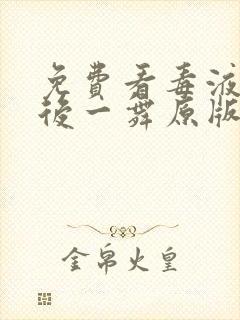 免費看毒液
後一舞原版
金帛火皇